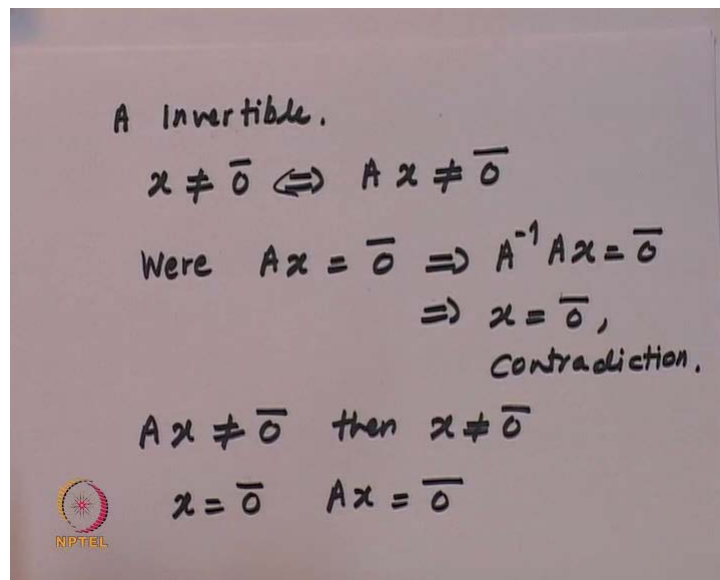 A Invertible.
x ≠ 0̅ ⇔ A x ≠ 0̅
Were Ax = 0̅ ⇒ A⁻¹ Ax = 0̅
⇒ x = 0̅,
Contradiction.
Ax ≠ 0̅ then x ≠ 0̅
x = 0̅ Ax = 0̅
NPTEL